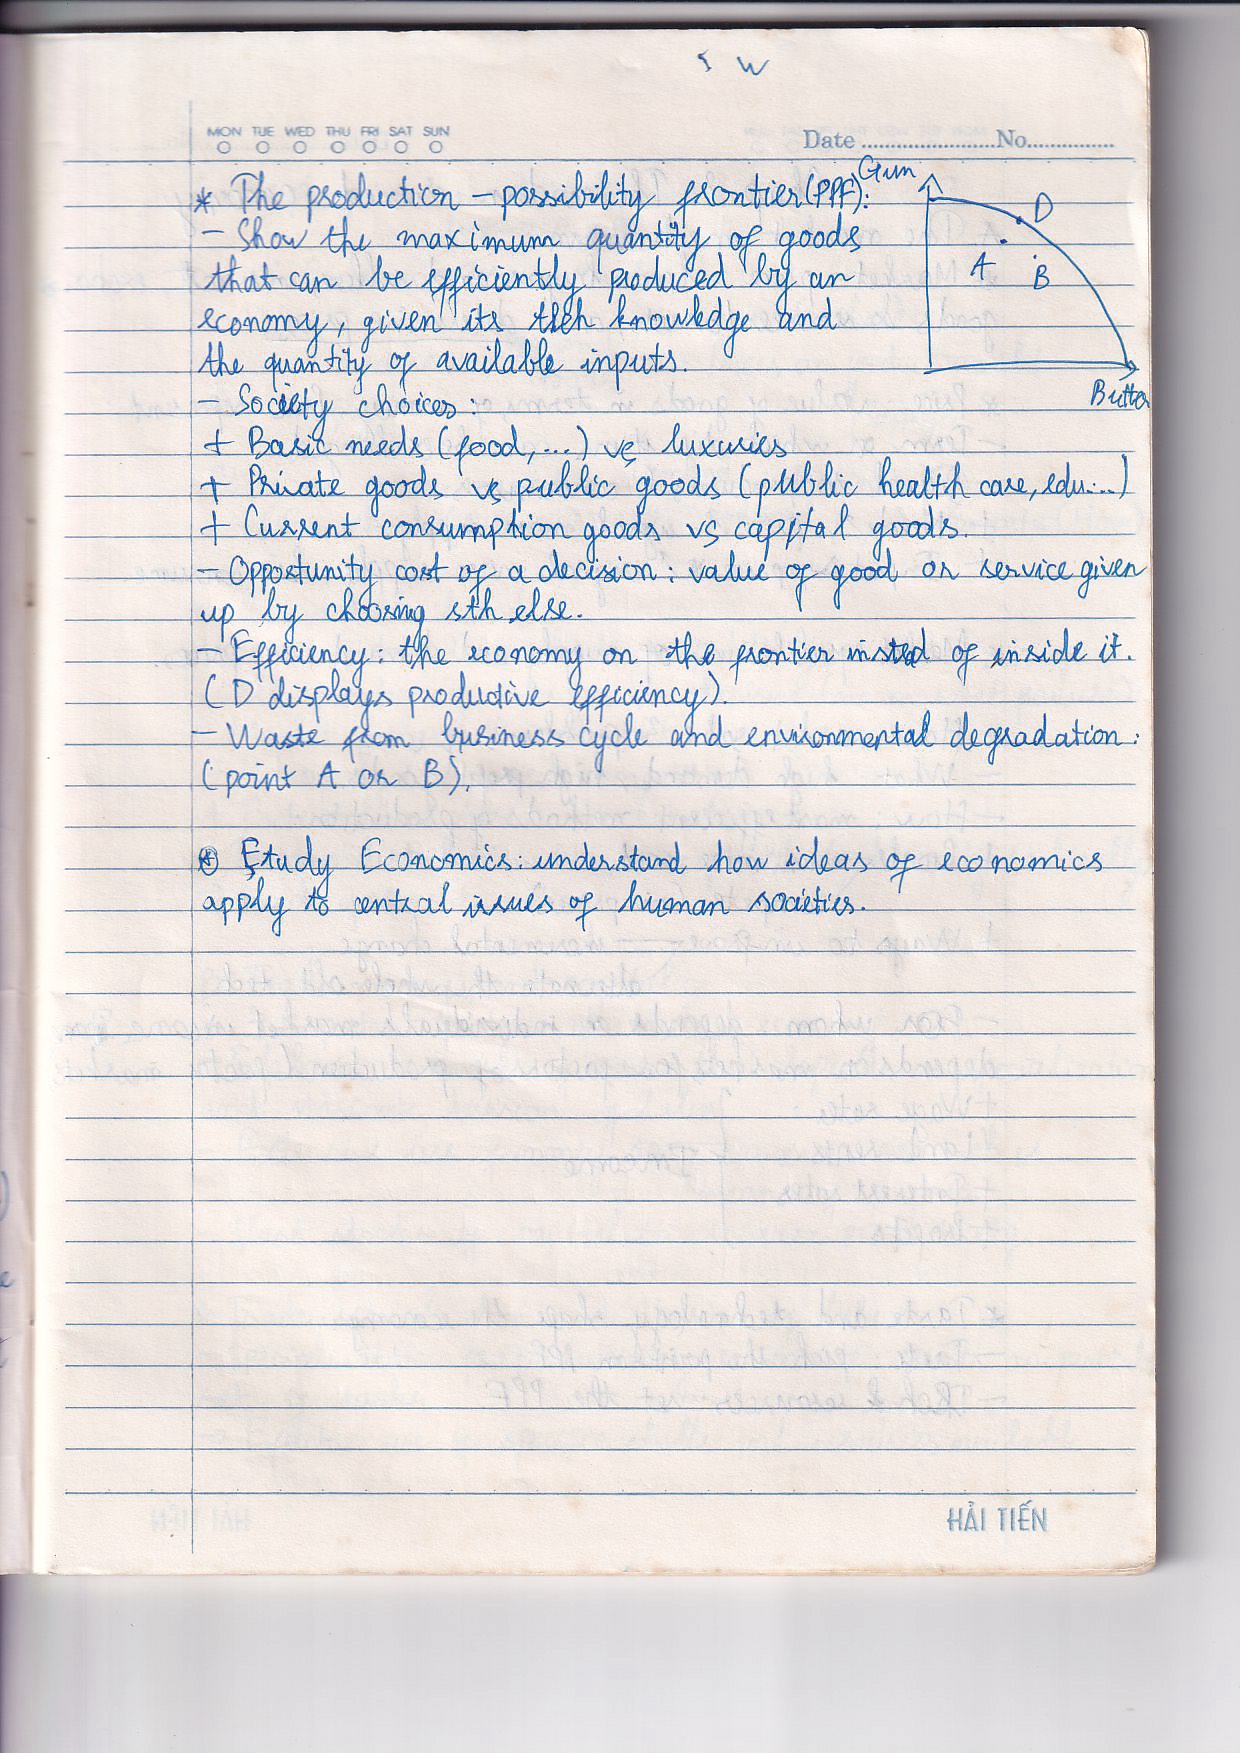 MON TUE WED THU FRI SAT SUN
Date ........................No................
* The production – possibility frontier (PPF):
– Show the maximum quantity of goods
that can be efficiently produced by an
economy, given its tech knowledge and
the quantity of available inputs.
Gun
D
A
B
Butter
– Society choices:
+ Basic needs (food, ...) vs luxuries
+ Private goods vs public goods (public health care, edu...)
+ Current consumption goods vs capital goods.
– Opportunity cost of a decision: value of good or service given
up by choosing sth else.
– Efficiency: the economy on the frontier insted of inside it.
(D displays productive efficiency).
– Waste from business cycle and environmental degradation:
(point A or B).
* Study Economics: understand how ideas of economics
apply to central issues of human societies.
HẢI TIẾN